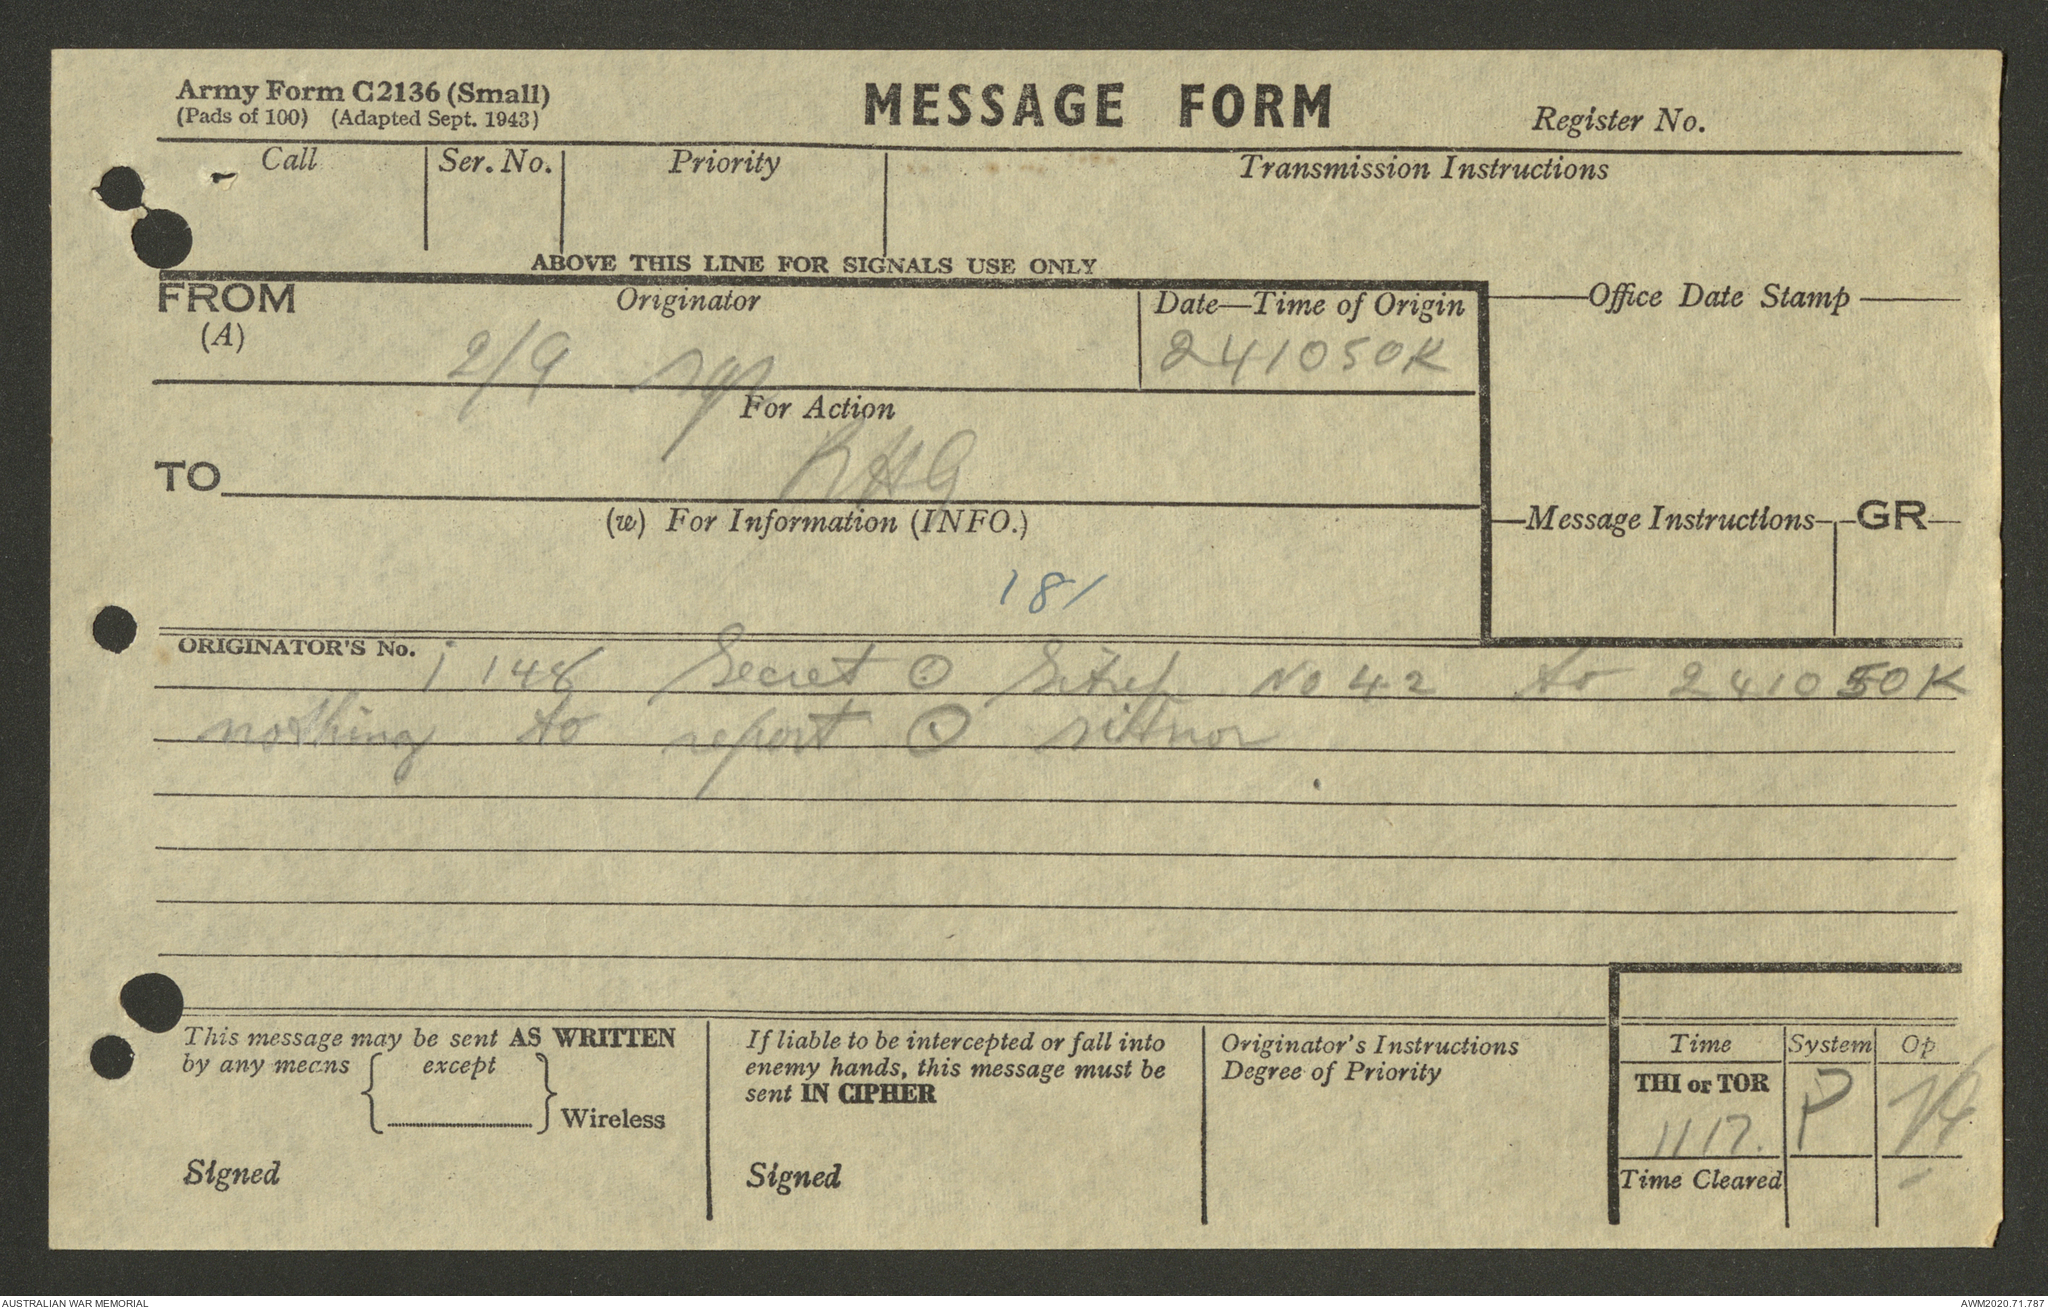 Army Form C2136 (Small)
(Pads of 100) (Adapted Sept. 1943)
MESSAGE FORM
Register No.
Call
Ser. No.
Priority
Transmission Instructions
ABOVE THIS LINE FOR SIGNALS USE ONLY
FROM
(A)
Originator
Date—Time of Origin
Office Date Stamp
2/9
241050K
For Action
TO
(w) For Information (INFO.)
Message Instructions
GR
181
ORIGINATOR'S No.
148 Secret ⊙ Sitrep No 42 to 241050K
nothing to report ⊙
This message may be sent AS WRITTEN
by any means { except } Wireless
Signed
If liable to be intercepted or fall into
enemy hands, this message must be
sent IN CIPHER
Signed
Originator's Instructions
Degree of Priority
Time
System
Op
THI or TOR
1117.
P
Time Cleared
AUSTRALIAN WAR MEMORIAL
AWM2020.71.787